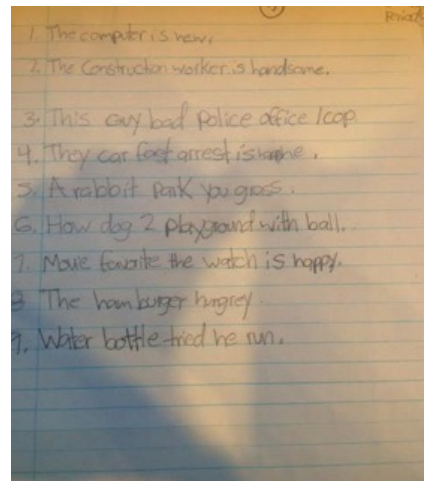 1. The computer is new.
2. The Construction worker is handsome.
3. This guy bad police office /cop
4. They car fast arrest is
5. A rabbit park you grass.
6. How dog 2 playground with ball.
7. Movie favorite the watch is happy.
8 The hamburger hungrey.
9. Water bottle tried he run.